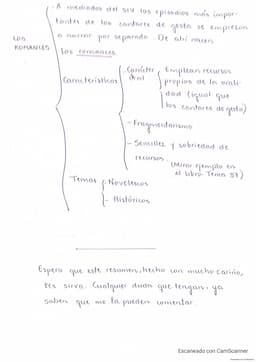 - A mediados del siv los episodios más impor-
tantes de los cantares de gesta se empiezan
a narrar por separado. De ahí nacen
los romances.
LOS
ROMANCES
Características
- Carácter
oral
Emplean recursos
propios de la orali-
dad (igual que
los cantares de gesta)
- Fragmentarismo
- Sencillez y sobriedad de
recursos.
(Mirar ejemplo en
el libro. Tema 5?)
Temas
- Novelescos
- Históricos
Espero que este resumen, hecho con mucho cariño,
les sirva. Cualquier duda que tengan, ya
saben que me la pueden comentar
Escaneado con CamScanner